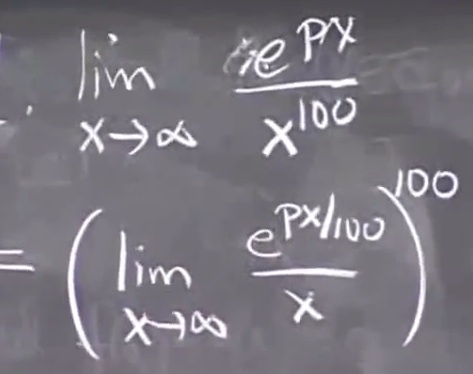 lim x→∞ e^{px} / x^{100}
= ( lim x→∞ e^{px/100} / x )^{100}